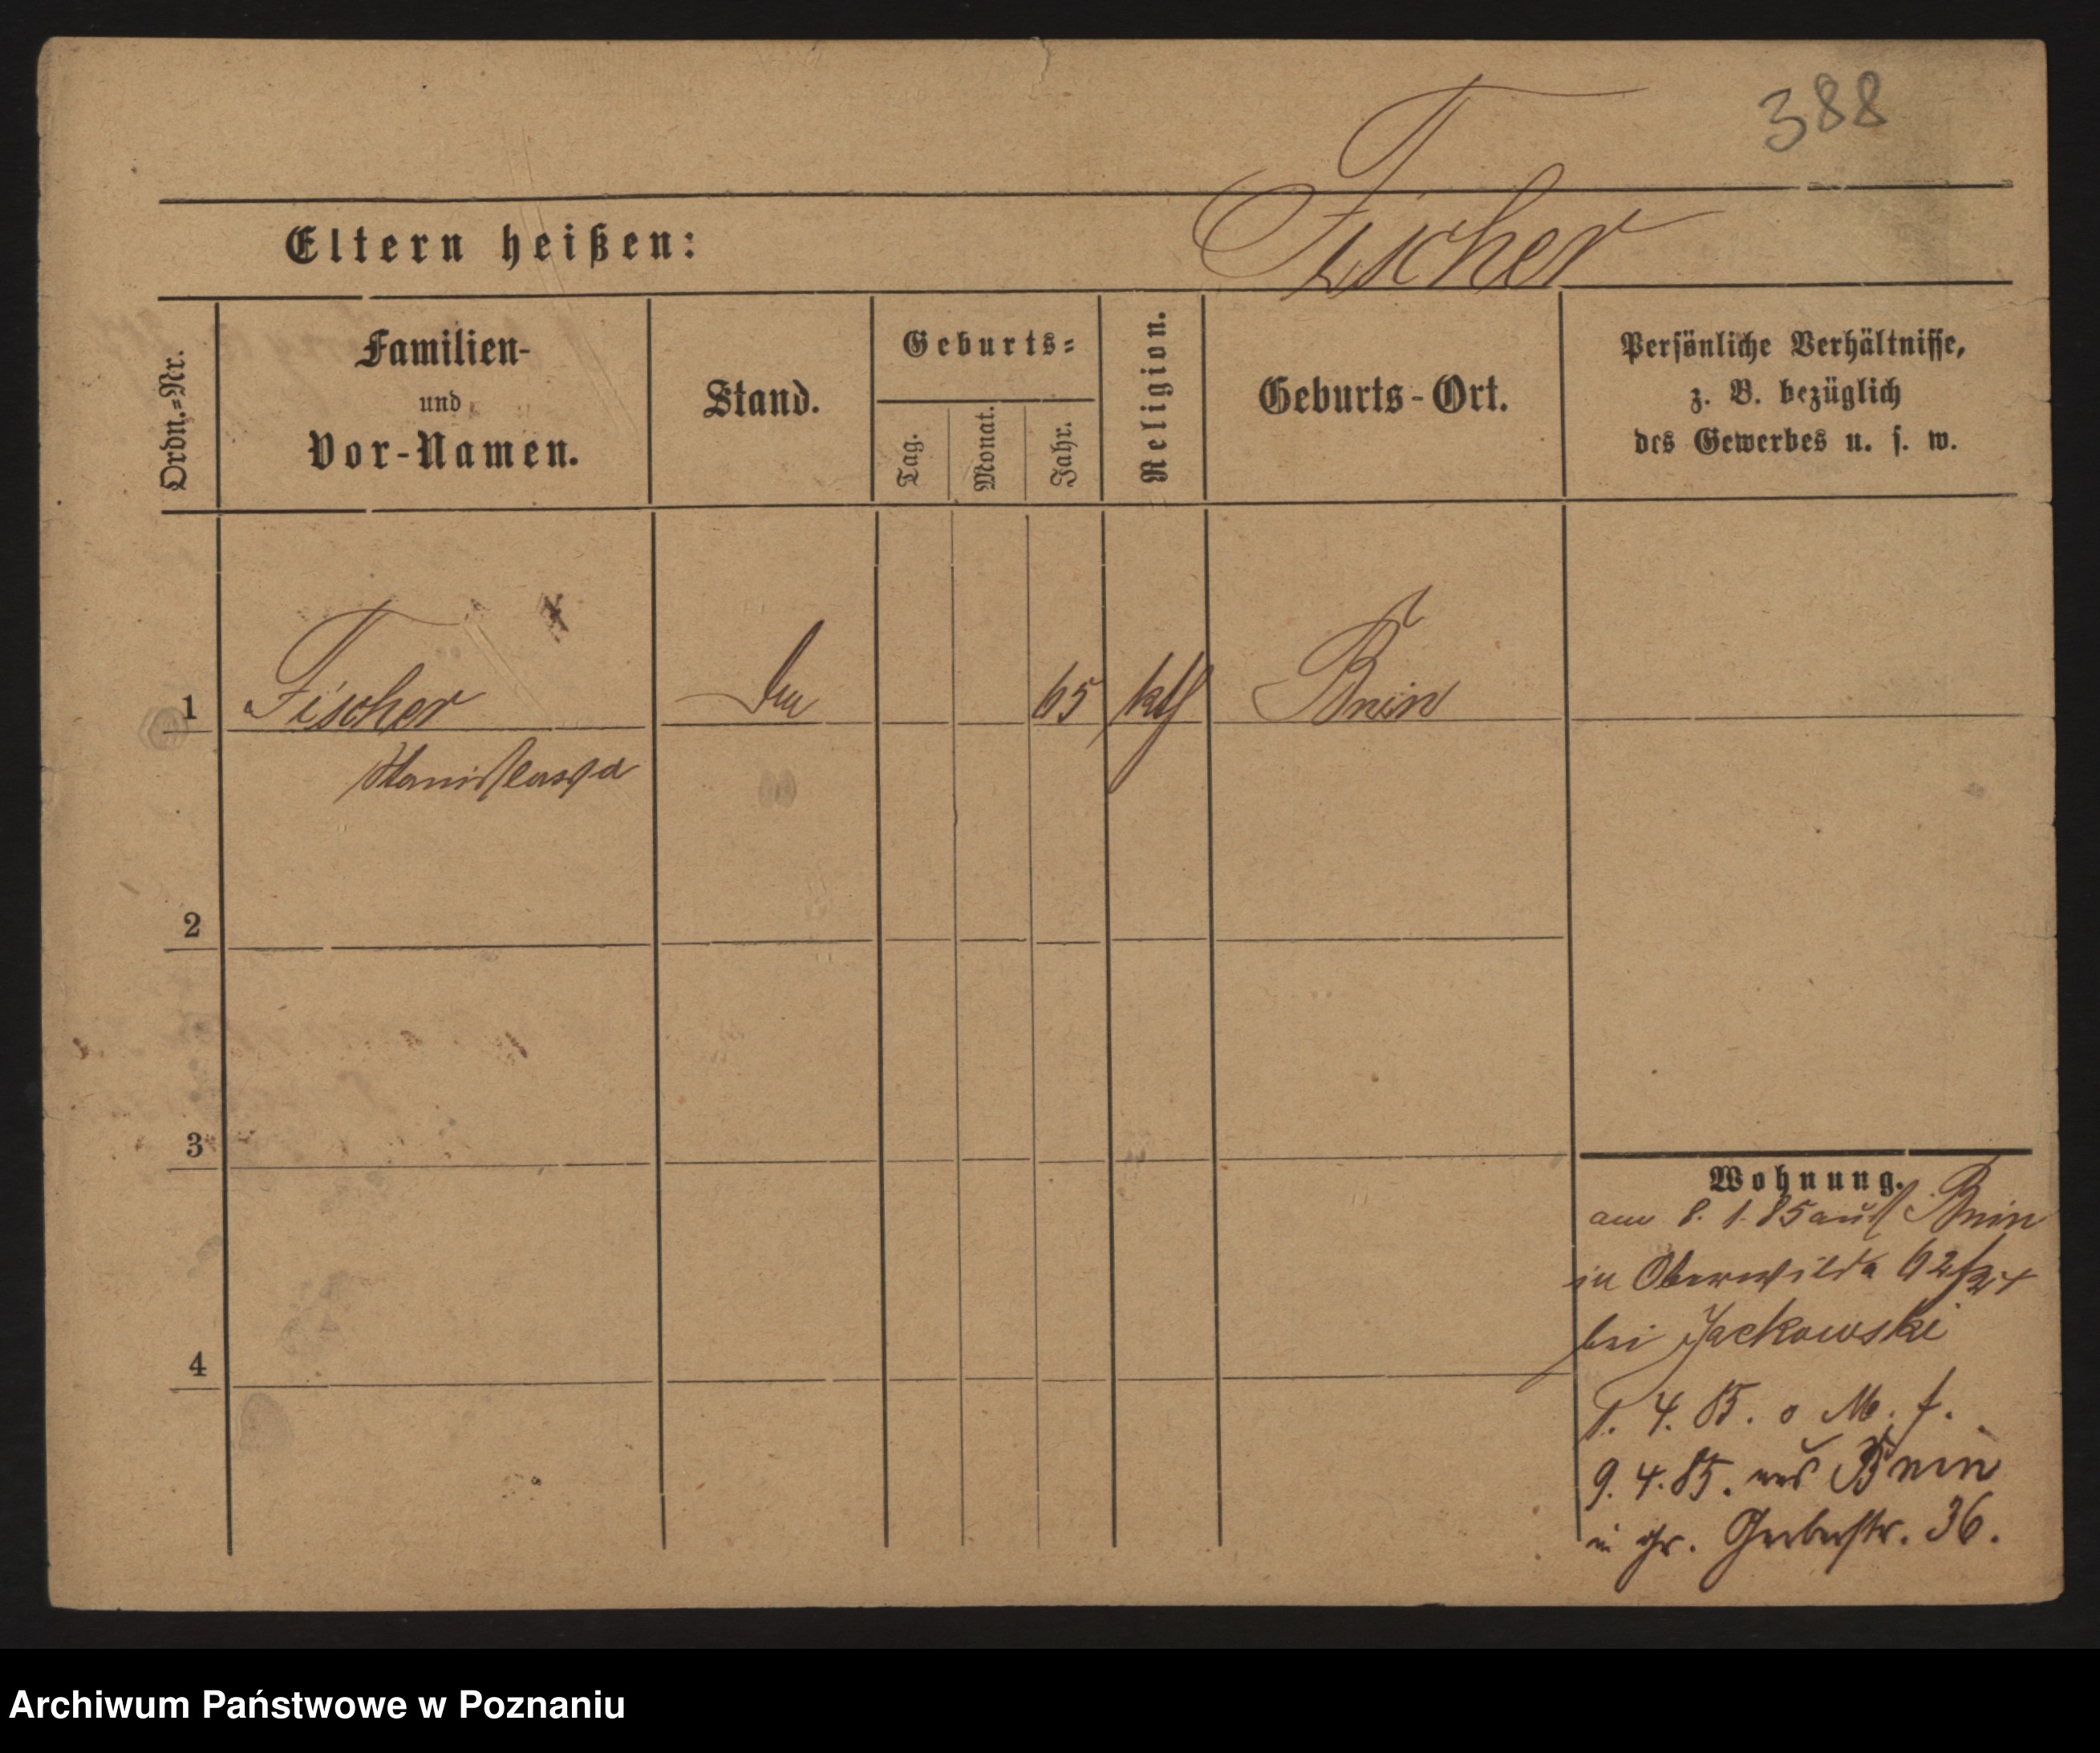 388
Fischer
Eltern heißen:
Ordn.=Nr.
Familien-
und
Vor-Namen.
Stand.
Geburts=
Tag.
Monat.
Jahr.
Religion.
Geburts-Ort.
Persönliche Verhältnisse,
z. B. bezüglich
des Gewerbes u. s. w.
1 Fischer 65 kth Bnin
Stanislawa
2
3
4
Wohnung.
am 8. 1. 85 aus Bnin
in Oberwilda 62/24
bei Jackowski
1. 4. 85. o M. f.
9. 4. 85. aus Bnin
in gr. Gerberstr. 36.
Archiwum Państwowe w Poznaniu